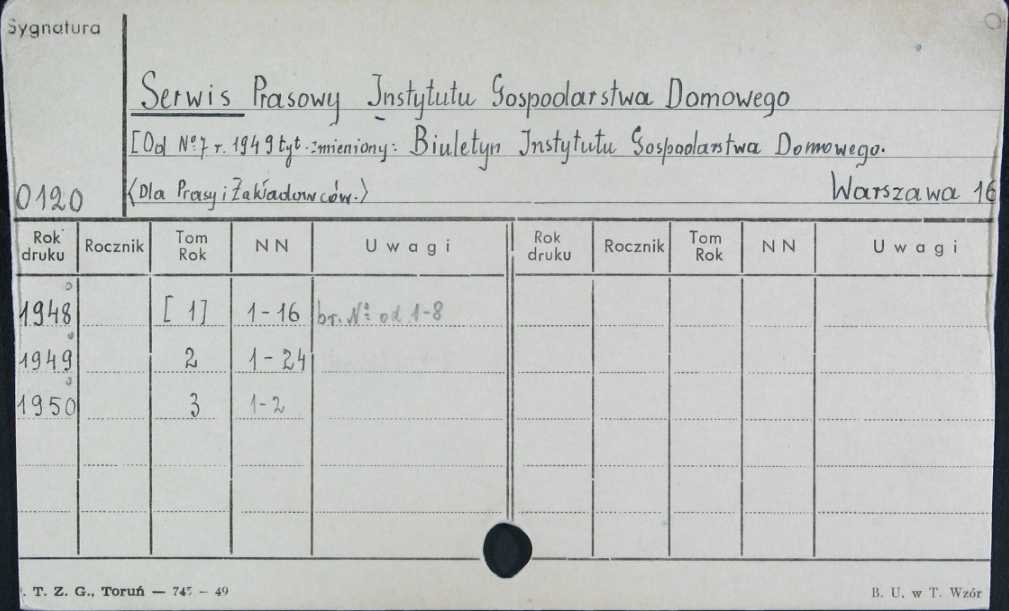 Sygnatura
Serwis Prasowy Instytutu Gospodarstwa Domowego
[Od Nº7 r. 1949 tyt. zmieniony: Biuletyn Instytutu Gospodarstwa Domowego.
0120 〈Dla Prasy i Zakładowców.〉 Warszawa 16
Rok druku Rocznik Tom Rok NN Uwagi Rok druku Rocznik Tom Rok NN Uwagi
1948 [1] 1-16 br. Nº od 1-8
1949 2 1-24
1950 3 1-2
. T. Z. G., Toruń — 745 — 49 B. U. w T. Wzór